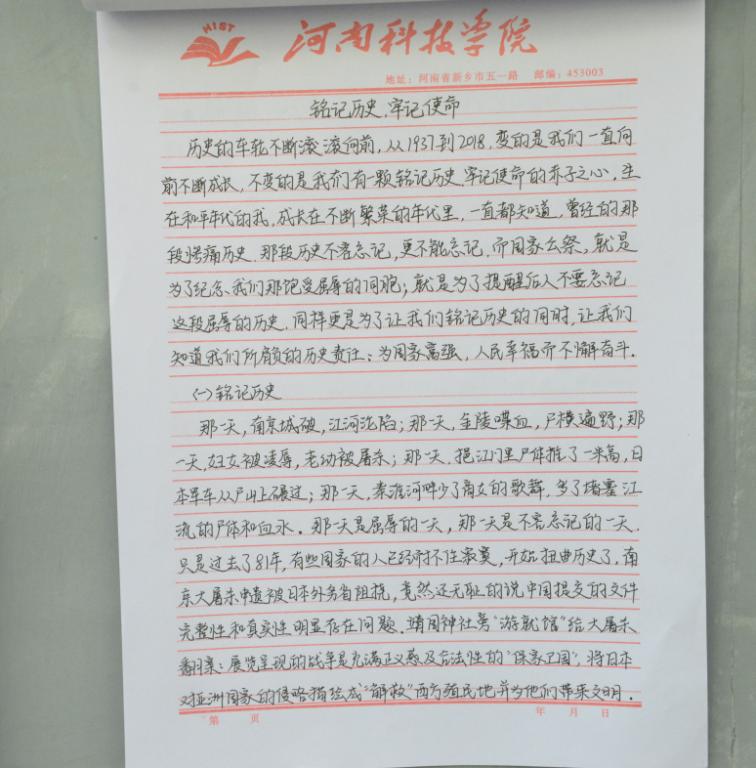 HIST
河南科技学院
地址：河南省新乡市五一路 邮编：453003
铭记历史，牢记使命
历史的车轮不断滚滚向前，从1937到2018，变的是我们一直向
前不断成长，不变的是我们有一颗铭记历史牢记使命的赤子之心，生
在和平年代的我，成长在不断繁荣的年代里，一直都知道，曾经的那
段惨痛历史，那段历史不容忘记，更不能忘记，而国家公祭，就是
为了纪念我们那饱受屈辱的同胞；就是为了提醒后人不要忘记
这段屈辱的历史，同样更是为了让我们铭记历史的同时，让我们
知道我们所肩负的历史责任：为国家富强，人民幸福而不懈奋斗．
(一)铭记历史
那一天，南京城破，江河沦陷；那一天，金陵喋血，尸横遍野；那
一天，妇女被凌辱，老幼被屠杀；那一天，挹江门里尸体堆了一米高，日
本军车从尸山上碾过；那一天，秦淮河畔少了商女的歌舞，多了堵塞江
流的尸体和血水．那一天是屈辱的一天，那一天是不容忘记的一天．
只是过去了81年，有些国家的人已经耐不住寂寞，开始扭曲历史了，南
京大屠杀申遗被日本外务省阻挠，竟然还无耻的说中国提交的文件
完整性和真实性明显存在问题．靖国神社旁“游就馆”给大屠杀
翻案：展览呈现的战争是充满正义感及合法性的“保家卫国”，将日本
对亚洲国家的侵略描绘成“解救”西方殖民地并为他们带来文明．
第 页 年 月 日